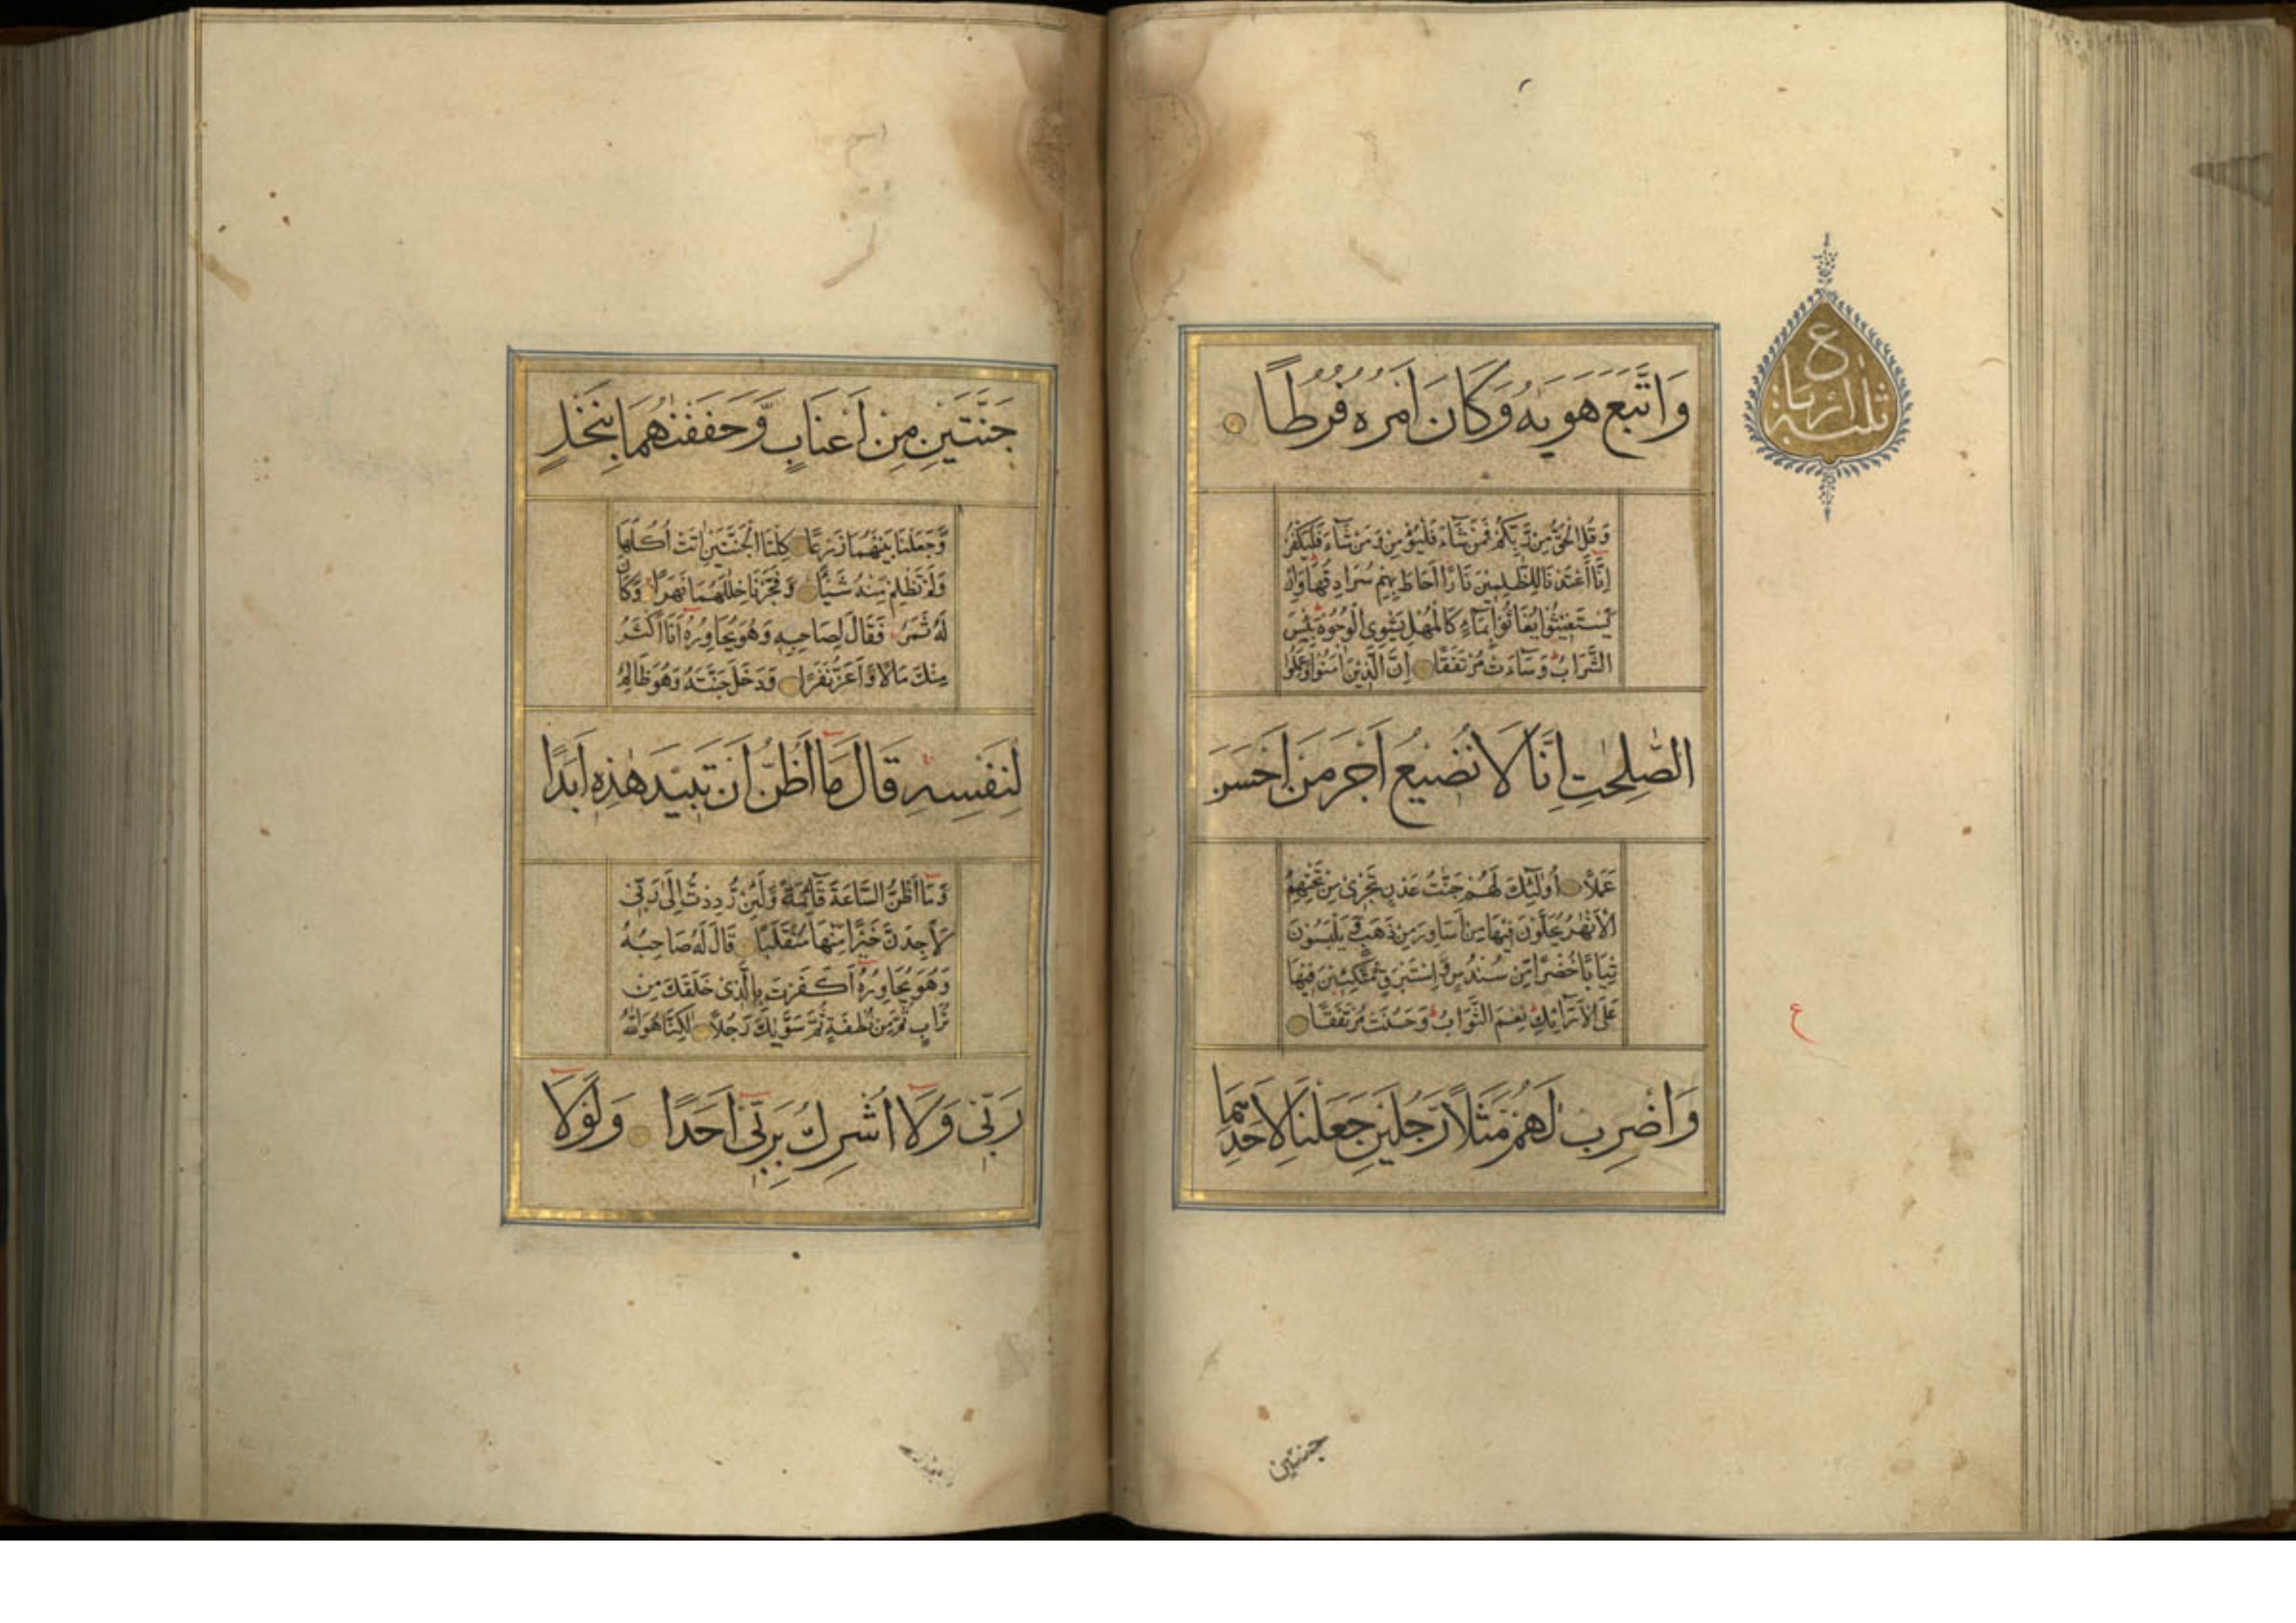 وَاتَّبَعَ هَوٰيهُ وَكَانَ اَمْرُهُ فُرُطًا
وَقُلِ الْحَقُّ مِنْ رَبِّكُمْ فَمَنْ شَآءَ فَلْيُؤْمِنْ وَمَنْ شَآءَ فَلْيَكْفُرْ
اِنَّا اَعْتَدْنَا لِلظّٰلِمِيْنَ نَارًا اَحَاطَ بِهِمْ سُرَادِقُهَا وَاِنْ
يَسْتَغِيْثُوْا يُغَاثُوْا بِمَآءٍ كَالْمُهْلِ يَشْوِى الْوُجُوْهَ بِئْسَ
الشَّرَابُ وَسَآءَتْ مُرْتَفَقًا اِنَّ الَّذِيْنَ اٰمَنُوْا وَعَمِلُوا
الصّٰلِحٰتِ اِنَّا لَا نُضِيْعُ اَجْرَ مَنْ اَحْسَنَ
عَمَلًا اُولٰٓئِكَ لَهُمْ جَنّٰتُ عَدْنٍ تَجْرِىْ مِنْ تَحْتِهِمُ
الْاَنْهٰرُ يُحَلَّوْنَ فِيْهَا مِنْ اَسَاوِرَ مِنْ ذَهَبٍ وَّيَلْبَسُوْنَ
ثِيَابًا خُضْرًا مِّنْ سُنْدُسٍ وَّاِسْتَبْرَقٍ مُّتَّكِئِيْنَ فِيْهَا
عَلَى الْاَرَآئِكِ نِعْمَ الثَّوَابُ وَحَسُنَتْ مُرْتَفَقًا
وَاضْرِبْ لَهُمْ مَّثَلًا رَّجُلَيْنِ جَعَلْنَا لِاَحَدِهِمَا
ثلثة ارباع
ع
جنتين
جَنَّتَيْنِ مِنْ اَعْنَابٍ وَّحَفَفْنٰهُمَا بِنَخْلٍ
وَّجَعَلْنَا بَيْنَهُمَا زَرْعًا كِلْتَا الْجَنَّتَيْنِ اٰتَتْ اُكُلَهَا
وَلَمْ تَظْلِمْ مِنْهُ شَيْئًا وَّفَجَّرْنَا خِلٰلَهُمَا نَهَرًا وَّكَانَ
لَهُ ثَمَرٌ فَقَالَ لِصَاحِبِهٖ وَهُوَ يُحَاوِرُهُ اَنَا اَكْثَرُ
مِنْكَ مَالًا وَّاَعَزُّ نَفَرًا وَدَخَلَ جَنَّتَهُ وَهُوَ ظَالِمٌ
لِنَفْسِهٖ قَالَ مَا اَظُنُّ اَنْ تَبِيْدَ هٰذِهٖ اَبَدًا
وَّمَا اَظُنُّ السَّاعَةَ قَآئِمَةً وَّلَئِنْ رُّدِدْتُّ اِلٰى رَبِّىْ
لَاَجِدَنَّ خَيْرًا مِّنْهَا مُنْقَلَبًا قَالَ لَهُ صَاحِبُهُ
وَهُوَ يُحَاوِرُهُ اَكَفَرْتَ بِالَّذِىْ خَلَقَكَ مِنْ
تُرَابٍ ثُمَّ مِنْ نُطْفَةٍ ثُمَّ سَوّٰيكَ رَجُلًا لٰكِنَّا هُوَ اللّٰهُ
رَبِّىْ وَلَا اُشْرِكُ بِرَبِّىْ اَحَدًا وَلَوْلَا